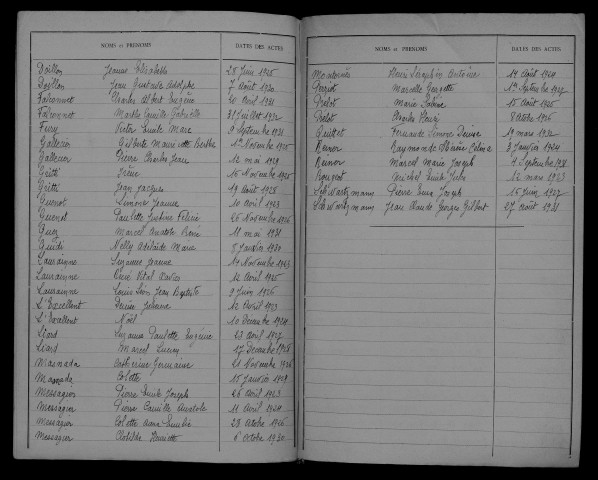 NOMS et PRÉNOMS DATES DES ACTES
Doillon Jeanne Elisabeth 28 Juin 1925
Doillon Jean Gustave Adolphe 7 Août 1930
Faivonnet Charles Albert Eugène 20 Avril 1931
Faivonnet Marthe Camille Gabrielle 31 Juillet 1932
Ferry Victor Emile Marc 9 Septembre 1931
Galleur Gilberte Marinette Berthe 1er Novembre 1925
Galleur Pierre Charles Jean 12 mai 1929
Gritti Irène 16 Novembre 1925
Gritti Jean Jacques 19 Août 1928
Guenot Simone Jeanne 10 Avril 1923
Guenot Paulette Justine Félicie 26 Novembre 1926
Guez Marcel Anatole René 11 mai 1931
Guidi Nelly Adélaïde Marie 8 Janvier 1930
Lauranne Suzanne Jeanne 14 Novembre 1923
Lauranne René Vital Xavier 12 Avril 1925
Lauranne Louis Léon Jean Baptiste 9 Juin 1926
L'Excellent Denise Juliana 12 Avril 1923
L'Excellent Noël 10 Décembre 1924
Liard Suzanne Paulette Eugénie 23 Avril 1927
Liard Marcel Lucien 17 Décembre 1928
Masnada Catherine Germaine 21 Novembre 1926
Masnada Colette 15 Janvier 1929
Messagier Pierre Emile Joseph 26 Avril 1923
Messagier Pierre Camille Anatole 11 Avril 1924
Messagier Colette 23 Octobre 1926
Messagier Clotilde Henriette 6 Octobre 1930
NOMS et PRÉNOMS DATES DES ACTES
Henri Séraphin Antoine 14 Août 1924
Marcelle Georgette 1er Septembre 1927
Marie 15 Août 1925
Charles Henri 8 Octobre 1926
Fernande Simone Denise 19 mars 1932
Reinor Raymonde Célina 3 Janvier 1924
Reinor Marcel Marie Joseph 4 Septembre 1928
Rougeot 12 mars 1923
Schwartzmann Pierre Joseph 15 Juin 1927
Schwartzmann Jean Claude Georges Gilbert 27 Août 1931